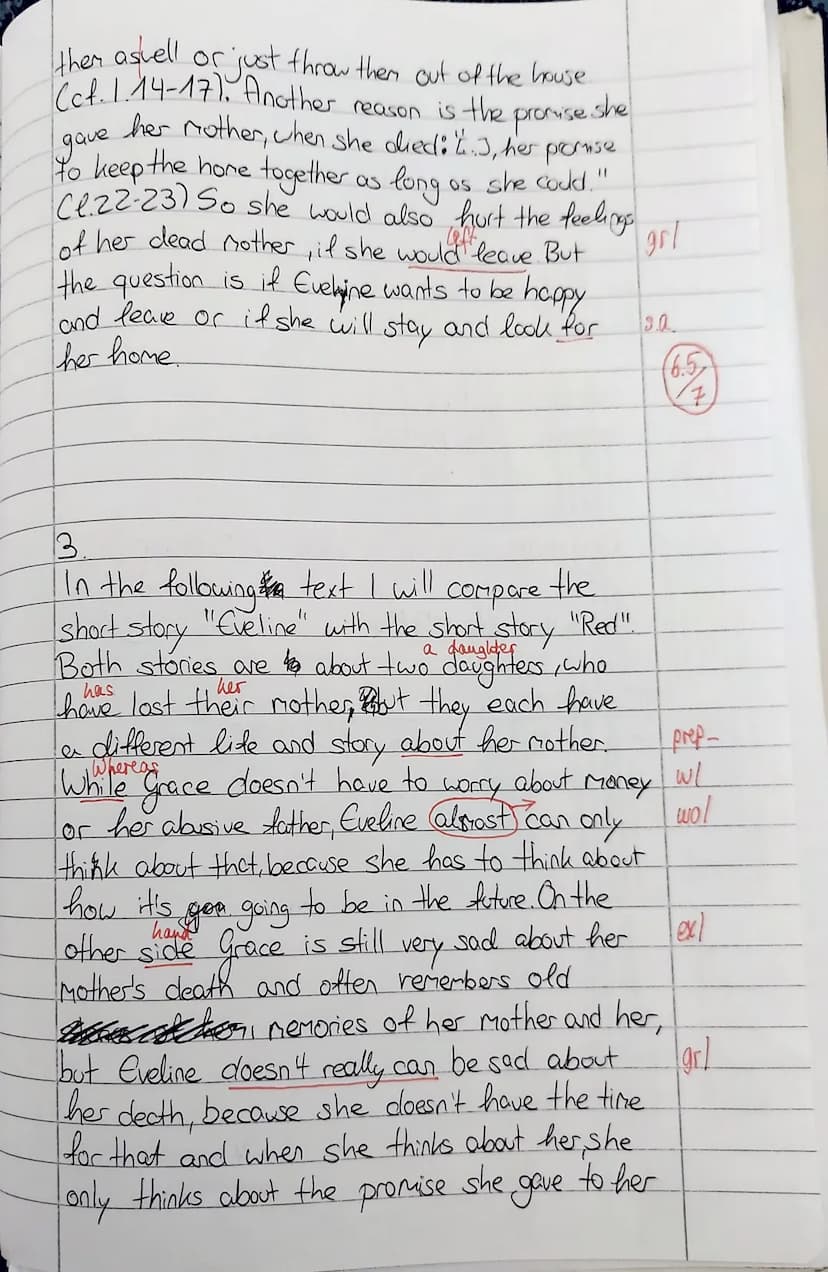 them aswell or just throw them out of the house
(cf. l. 14-17). Another reason is the promise she
gave her mother, when she died: "[...], her promise
to keep the home together as long as she could."
(l.22-23) So she would also hurt the feelings
left
of her dead mother, if she would leave. But grl
the question is if Eveline wants to be happy
and leave or if she will stay and look for s.a.
her home.
6.5/7
3.
In the following text I will compare the
short story "Eveline" with the short story "Red".
a daughter
Both stories are about two daughters, who
has her
have lost their mother, but they each have
a different life and story about her mother. prep-
Whereas
While Grace doesn't have to worry about money w/
or her abusive father, Eveline almost can only wo/
think about that, because she has to think about
how it's going to be in the future. On the
hand
other side Grace is still very sad about her ex/
Mother's death and often remembers old
memories of her mother and her,
but Eveline doesn't really can be sad about gr/
her death, because she doesn't have the time
for that and when she thinks about her, she
only thinks about the promise she gave to her